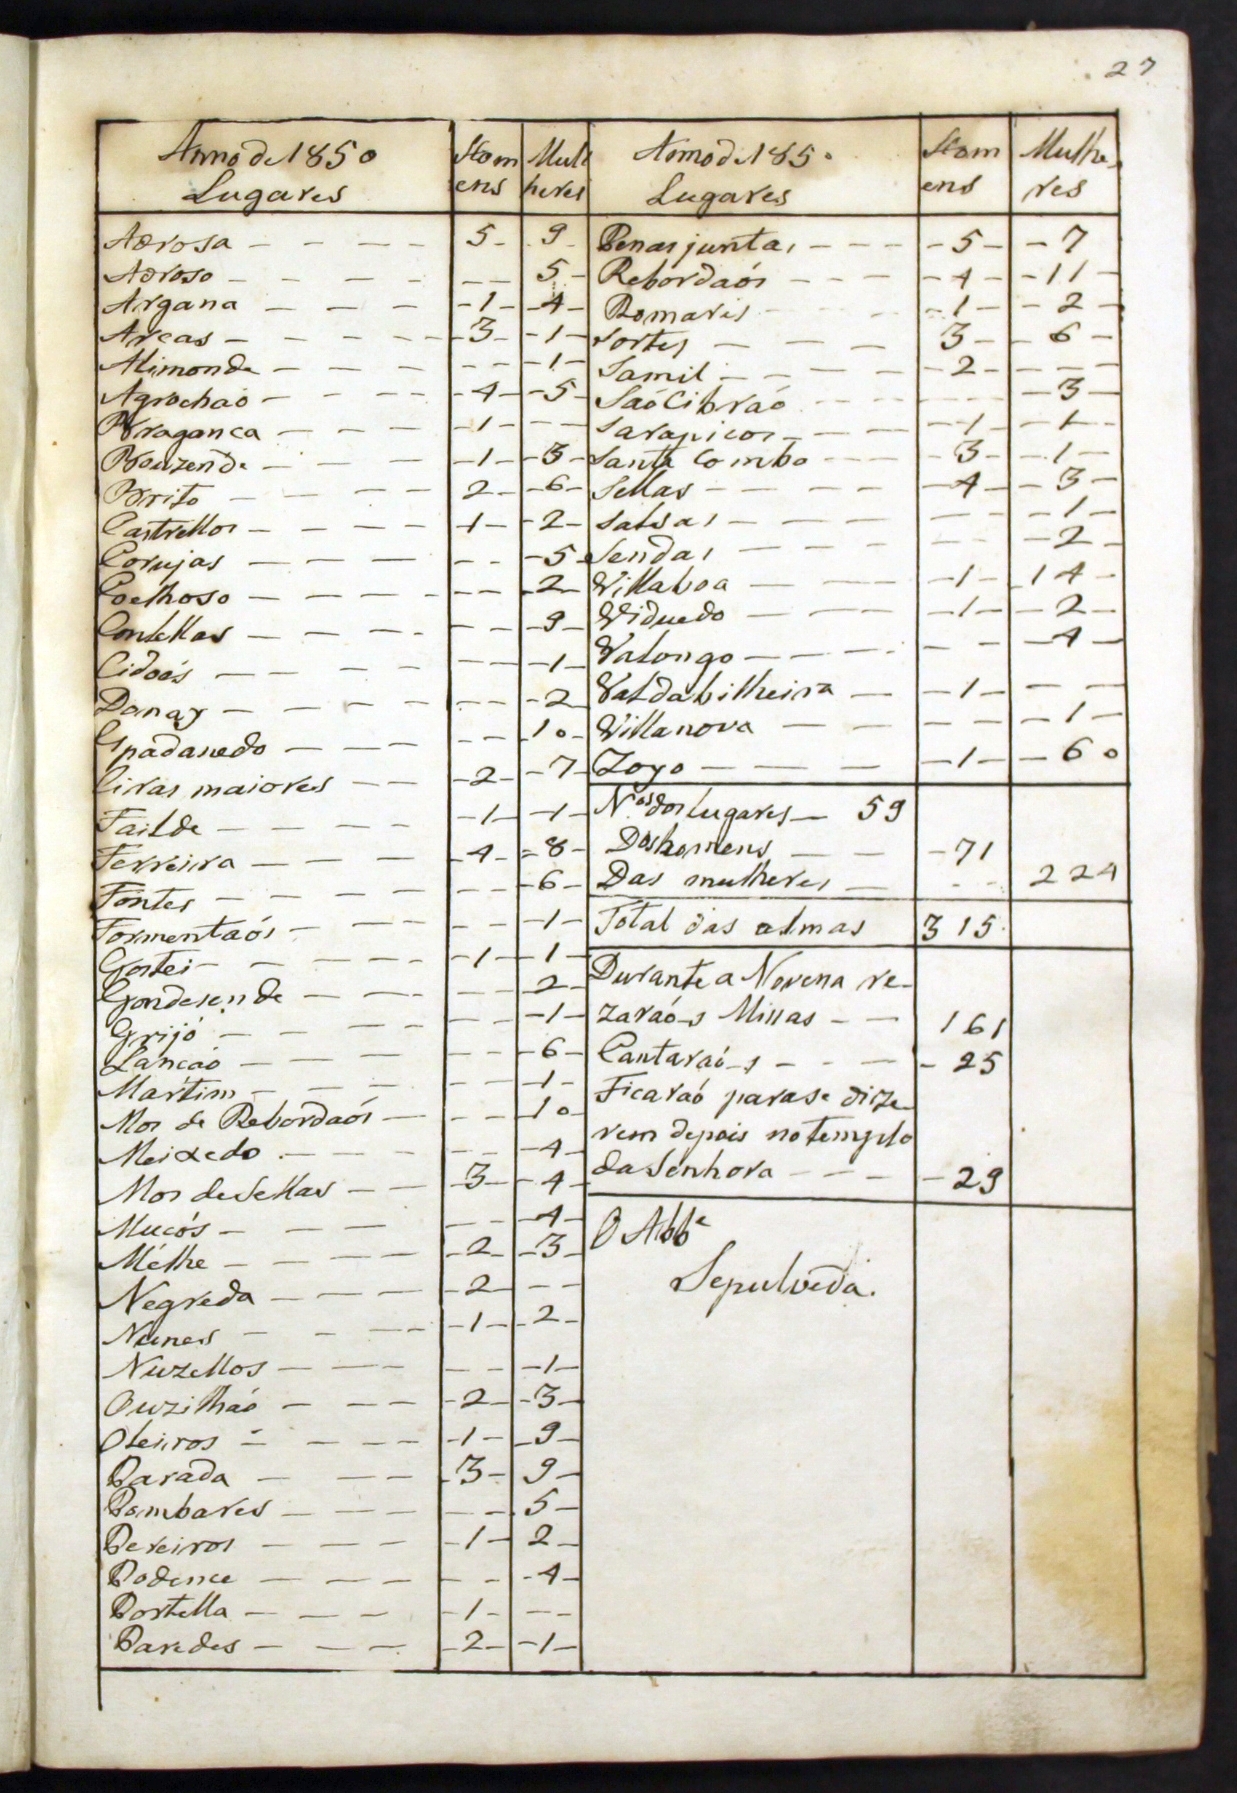 27
Anno de 1850 Hom Mulh
Lugares ens heres
Adrosa - - - - 5 - 9 -
Adroso - - - - - - 5 -
Argana - - - - 1 - - 4 -
Arcas - - - - - 3 - - 1 -
Alimonde - - - - - - - 1 -
Agrochaó - - - - 4 - - 5 -
Bragança - - - - 1 - - -
Bouzende - - - - 1 - - 3 -
Brito - - - - 2 - - 6 -
Castrellos - - - - 1 - - 2 -
Corujas - - - - - - - 5
Coelhoso - - - - - - - 2 -
Conlellas - - - - - - - 9 -
Cidoés - - - - - - - 1 -
Donay - - - - - - - 2
Espadanedo - - - - - 10 -
Eiras maiores - - - 2 - - 7 -
Failde - - - - 1 - - 1 -
Ferreira - - - - 4 - - 8 -
Fontes - - - - - - - 6 -
Formentaós - - - - - - 1 -
Gostei - - - - 1 - - 1 -
Gondesende - - - - - 2 -
Grijó - - - - - - - 1 -
Lancaó - - - - - - - 6 -
Martim - - - - - - - 1 -
Mos de Rebordaós - - - - 10 -
Meixedo - - - - - - 4 -
Mos de Sellas - - 3 - - 4 -
Mucós - - - - - - 4 -
Mélhe - - - - 2 - - 3 -
Negreda - - - - 2 - - -
Nunes - - - - 1 - - 2 -
Nuzellos - - - - - - 1 -
Ouzilhaó - - - - 2 - - 3 -
Oleiros - - - - 1 - - 9 -
Parada - - - - 3 - 9 -
Pombares - - - - - - 5 -
Pereiros - - - - 1 - 2 -
Podence - - - - - - 4 -
Portella - - - - 1 - - -
Paredes - - - - 2 - - 1 -
Anno de 1850 Hom Mulhe
Lugares ens res
Penas juntas - - - - 5 - - 7
Rebordaós - - - - 4 - - 11 -
Romaris - - - - 1 - - 2 -
Sortes - - - 3 - - 6 -
Samil - - - - - 2 - - - -
Saó Cibraó - - - - - - 3 -
Sarapicos - - - - 1 - - 1 -
Santa Combo - - - 3 - - 1 -
Sellas - - - - - 4 - - 3 -
Salsas - - - - - - - 1 -
Sendas - - - - - - 2 -
Villaboa - - - - 1 - 14 -
Viduedo - - - - 1 - - 2 -
Valongo - - - - - - - 4 -
Val da bilheira - - 1 - - -
Villanova - - - - - - 1 -
Zoyo - - - - 1 - - 60
N.os dos lugares - 59
Dos homens - - - 71
Das mulheres - - - 224
Total das almas 315
Durante a Novena re-
zaraó-s Missas - - 161
Cantaraó-s - - - - 25
Ficaraó para se dize-
rem depois no templo
da Senhora - - - - 29
O Abb.e
Sepulveda.